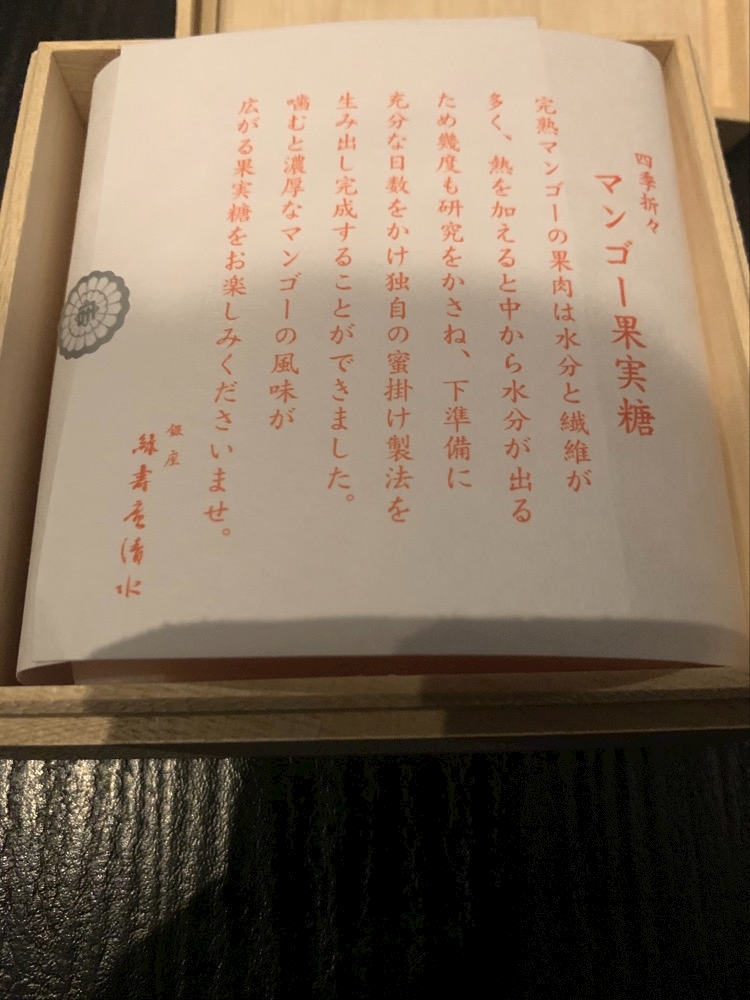 四季折々
マンゴー果実糖
完熟マンゴーの果肉は水分と繊維が
多く、熱を加えると中から水分が出る
ため幾度も研究をかさね、下準備に
充分な日数をかけ独自の蜜掛け製法を
生み出し完成することができました。
噛むと濃厚なマンゴーの風味が
広がる果実糖をお楽しみくださいませ。
銀座
緑寿庵清水